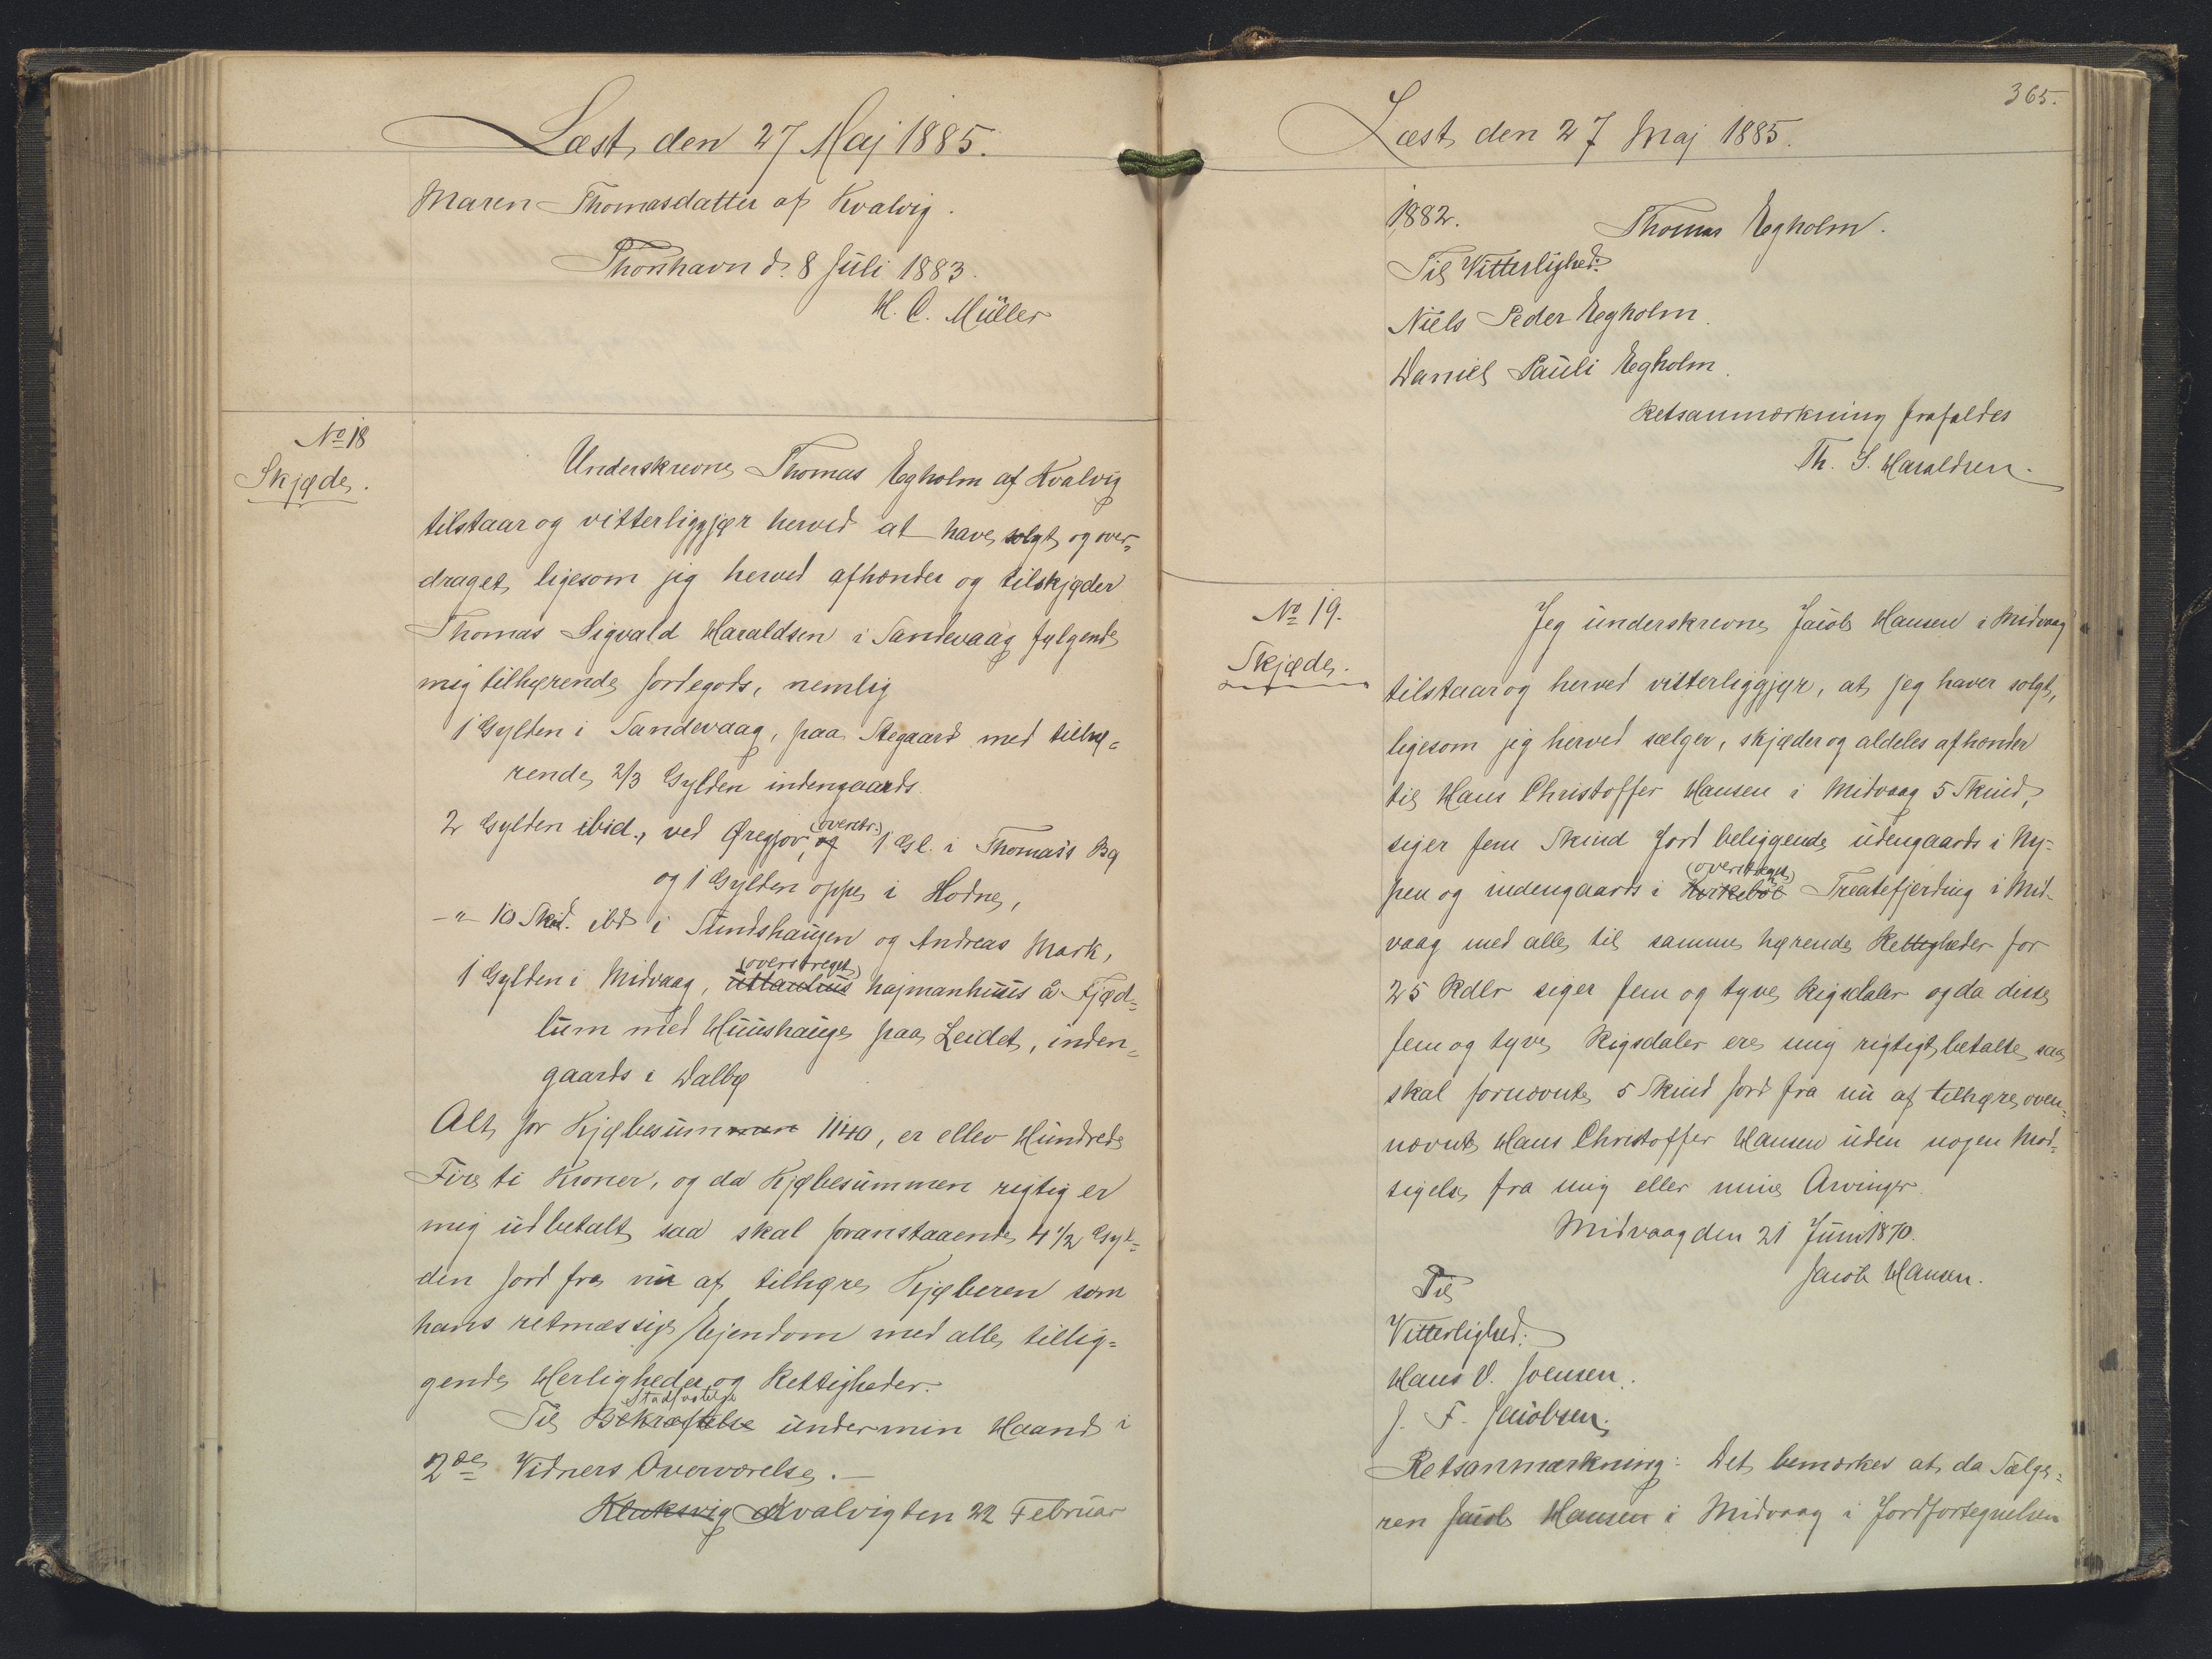 Læst den 27 Maj 1885.
Maren Thomasdatter af Kvalvig.
Thorshavn d. 8 Juli 1883.
H. C. Müller
No 18
Skjøde.
Underskrevne Thomas Egholm af Kvalvig
tilstaar og vitterliggjør herved at have solgt og over-
draget ligesom jeg herved afhænder og tilskjøder
Thomas Sigvald Haraldsen i Sandevaag følgende
mig tilhørende Jordegods, nemlig
1 Gylden i Sandevaag, paa Stegaard med tilhø-
rende 2/3 Gylden indengaards.
(overstr.)
2 Gylden ibid., ved Øregjov, og 1 Gl. i Thomas's Bø
og 1 Gylden oppe i Hodne,
-"- 10 Skd. ibd i Sundshaugen og Andreas Mark,
(overstreget)
1 Gylden i Midvaag, hajmanhuus å Fjød-
lum med Huushauge paa Leidet, inden-
gaards i Dalbø
Alt for Kjøbesummen 1140, er ellev Hundrede
Fire ti Kroner, og da Kjøbesummen rigtig er
mig udbetalt saa skal foranstaaende 4 1/2 Gyl-
den Jord fra nu af tilhøre Kjøberen som
hans retmæssige Ejendom med alle tillig-
gende Herligheder og Rettigheder.
Stadfæstelse
Til Bekræftelse under min Haand i
2de Vidners Overværelse.—
Klaksvig Kvalvig den 22 Februar
365.
Læst den 27 Maj 1885.
1882.
Thomas Egholm.
Til Vitterlighed:
Niels Peder Egholm.
Daniel Pauli Egholm.
Retsanmærkning frafaldes
Th. S. Haraldsen.
No 19.
Skjøde.
Jeg underskrevne Jacob Hansen i Midvaag
tilstaar og herved vitterliggjør, at jeg haver solgt,
ligesom jeg herved sælger, skjøder og aldeles afhænder
til Hans Christoffer Hansen i Midvaag 5 Skind,
siger fem Skind Jord beliggende udengaards i Ry-
(overstreget)
pen og indengaards i Kirkebøe Treatefjerding i Mid-
vaag med alle til samme hørende Rettigheder for
25 Rdlr siger fem og tyve Rigsdaler og da disse
fem og tyve Rigsdaler ere mig rigtigt betalte, saa
skal fornævnte 5 Skind Jord fra nu af tilhøre oven-
nævnte Hans Christoffer Hansen uden nogen Mod-
sigelse fra mig eller mine Arvinger.
Midvaag den 21 Juni 1870.
Jacob Hansen.
Til
Vitterlighed:
Hans V. Joensen.
J. F. Jacobsen.
Retsanmærkning: Det bemærkes at da Sælge-
ren Jacob Hansen i Midvaag i Jordfortegnelsen